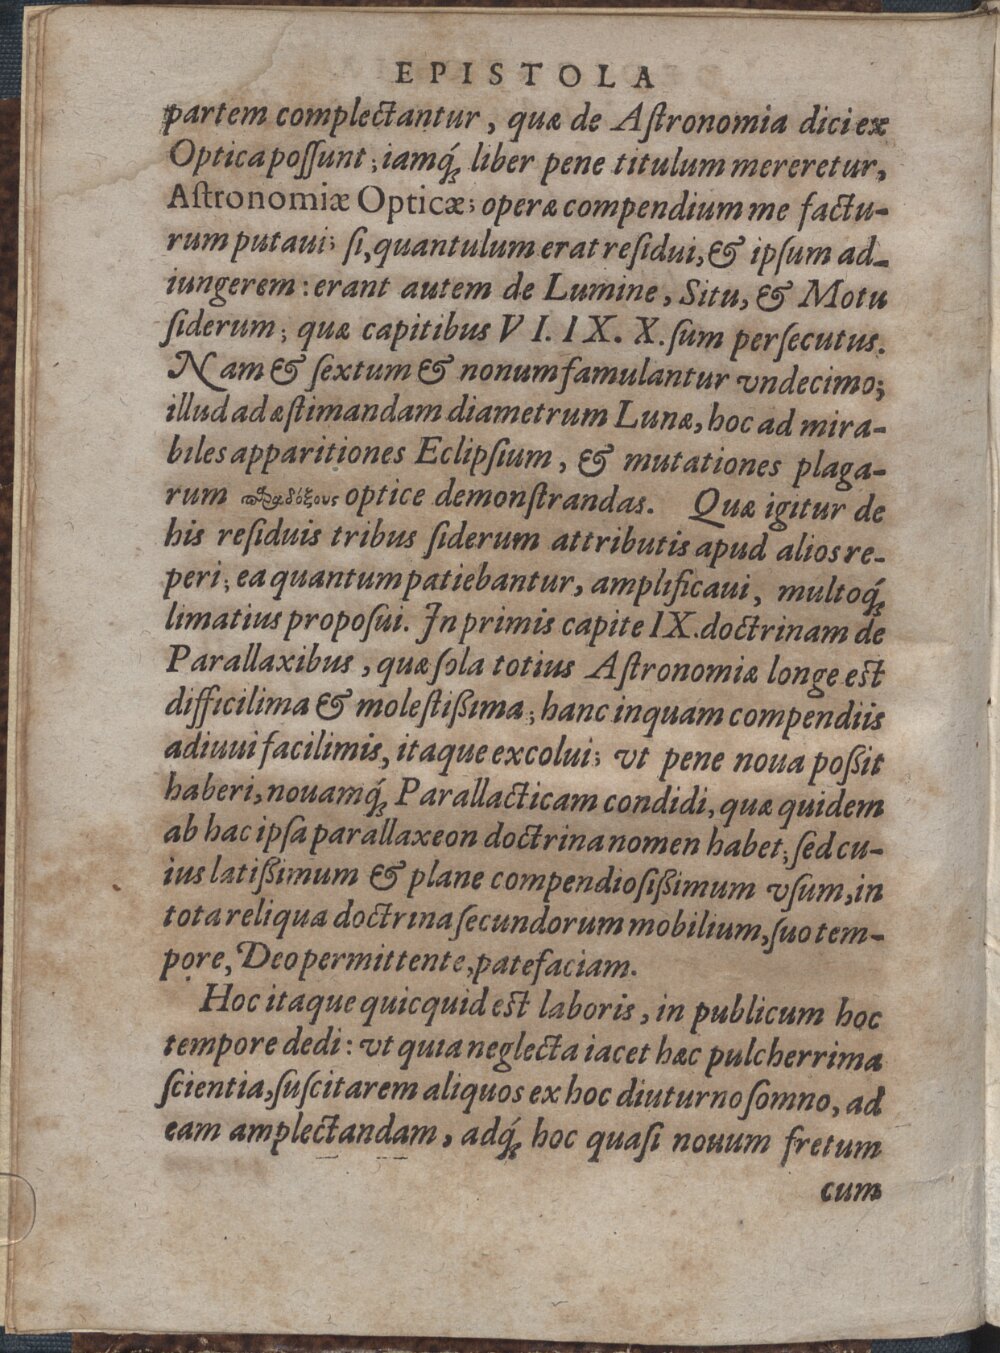 EPISTOLA
partem complectantur, quæ de Aſtronomia dici ex
Optica poſſunt; iamq́; liber pene titulum mereretur,
Aſtronomiæ Opticæ; operæ compendium me factu-
rum putaui; ſi, quantulum erat reſidui, & ipſum ad-
iungerem: erant autem de Lumine, Situ, & Motu
ſiderum; quæ capitibus VI. IX. X. ſum perſecutus.
Nam & ſextum & nonum famulantur vndecimo;
illud ad æſtimandam diametrum Lunæ, hoc ad mira-
biles apparitiones Eclipſium, & mutationes plaga-
rum παραδόξους optice demonſtrandas. Quæ igitur de
his reſiduis tribus ſiderum attributis apud alios re-
peri; ea quantum patiebantur, amplificaui, multoq́;
limatius propoſui. In primis capite IX. doctrinam de
Parallaxibus, quæ ſola totius Aſtronomiæ longe eſt
difficilima & moleſtißima; hanc inquam compendiis
adiuui facilimis, itaque excolui; vt pene noua poßit
haberi, nouamq́; Parallacticam condidi, quæ quidem
ab hac ipſa parallaxeon doctrina nomen habet; ſed cu-
ius latißimum & plane compendioſißimum vſum, in
tota reliqua doctrina ſecundorum mobilium, ſuo tem-
pore, Deo permittente, patefaciam.
Hoc itaque quicquid eſt laboris, in publicum hoc
tempore dedi: vt quia neglecta iacet hæc pulcherrima
ſcientia, ſuſcitarem aliquos ex hoc diuturno ſomno, ad
eam amplectandam, adq́; hoc quaſi nouum fretum
cum